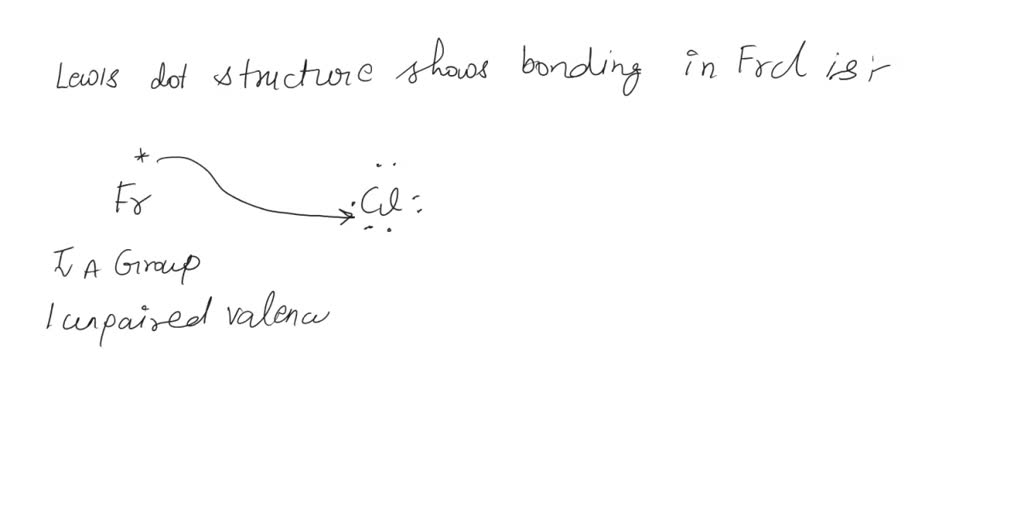 Lewis dot structure shows bonding in FrCl is:-
Fr
Cl
I A Group
1 unpaired valenc